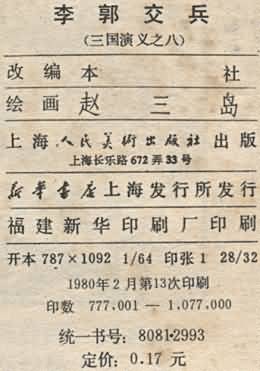 李郭交兵
(三国演义之八)
改编 本社
绘画 赵三岛
上海人民美術出版社出版
上海长乐路672弄33号
新华书店上海发行所发行
福建新华印刷厂印刷
开本 787×1092 1/64 印张 1 28/32
1980年2月第13次印刷
印数 777.001 — 1.077.000
统一书号: 8081·2993
定价: 0.17 元